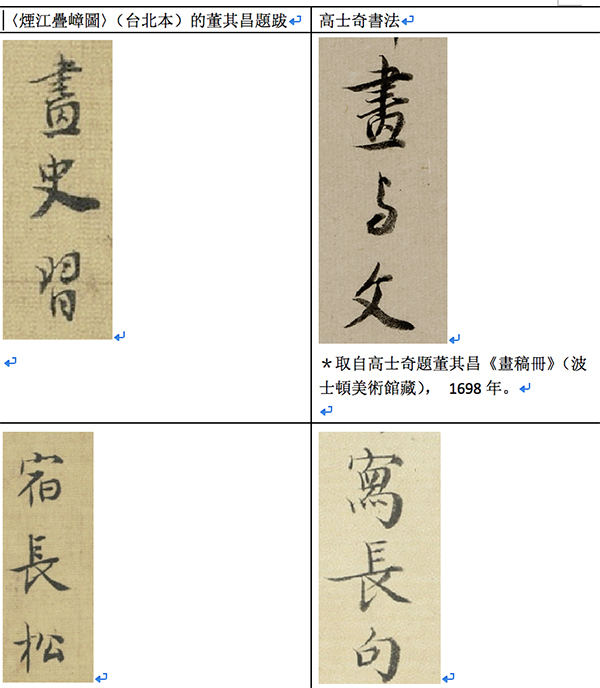 〈煙江疊嶂圖〉（台北本）的董其昌題跋
高士奇書法
畫史習
畫与文
＊取自高士奇題董其昌《畫稿冊》（波
士頓美術館藏）， 1698 年。
宿長松
寫長句